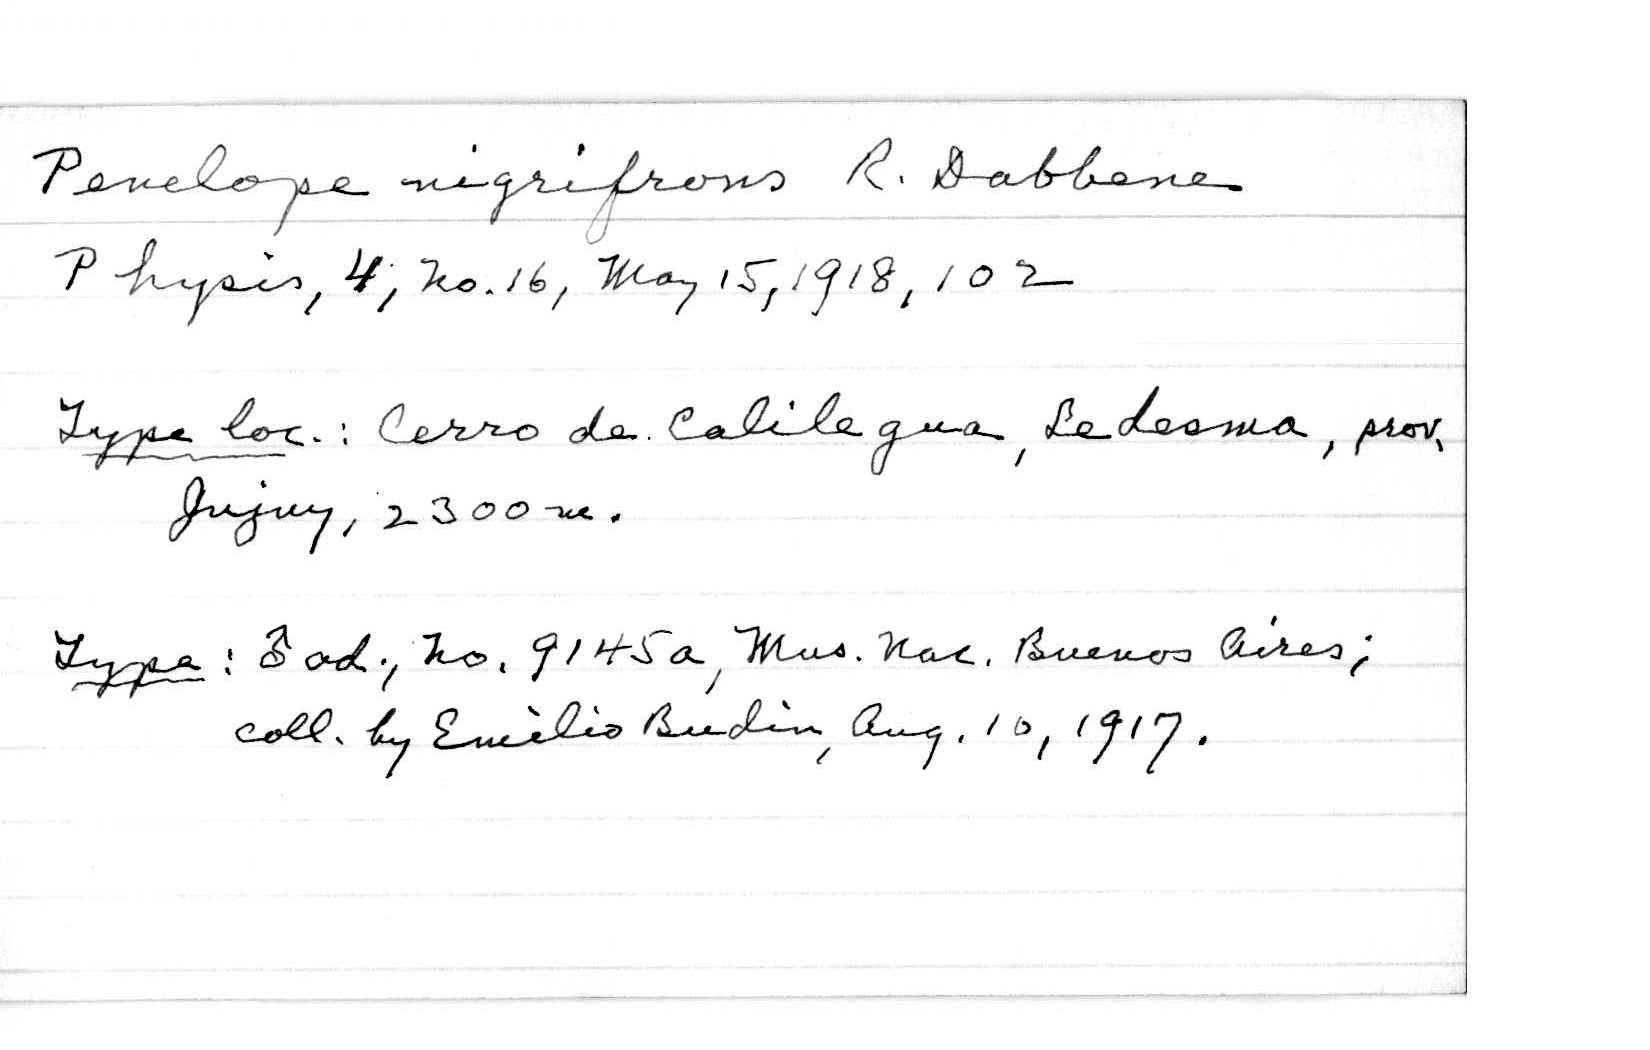 Penelope nigrifrons R. Dabbene
Physis, 4, No. 16, May 15, 1918, 102
Type loc.: Cerro de Calilegua, Ledesma, prov.
Jujuy, 2300 m.
Type: ♂ ad., No. 9145a, Mus. Nac. Buenos Aires;
coll. by Emilio Budin, Aug. 10, 1917.